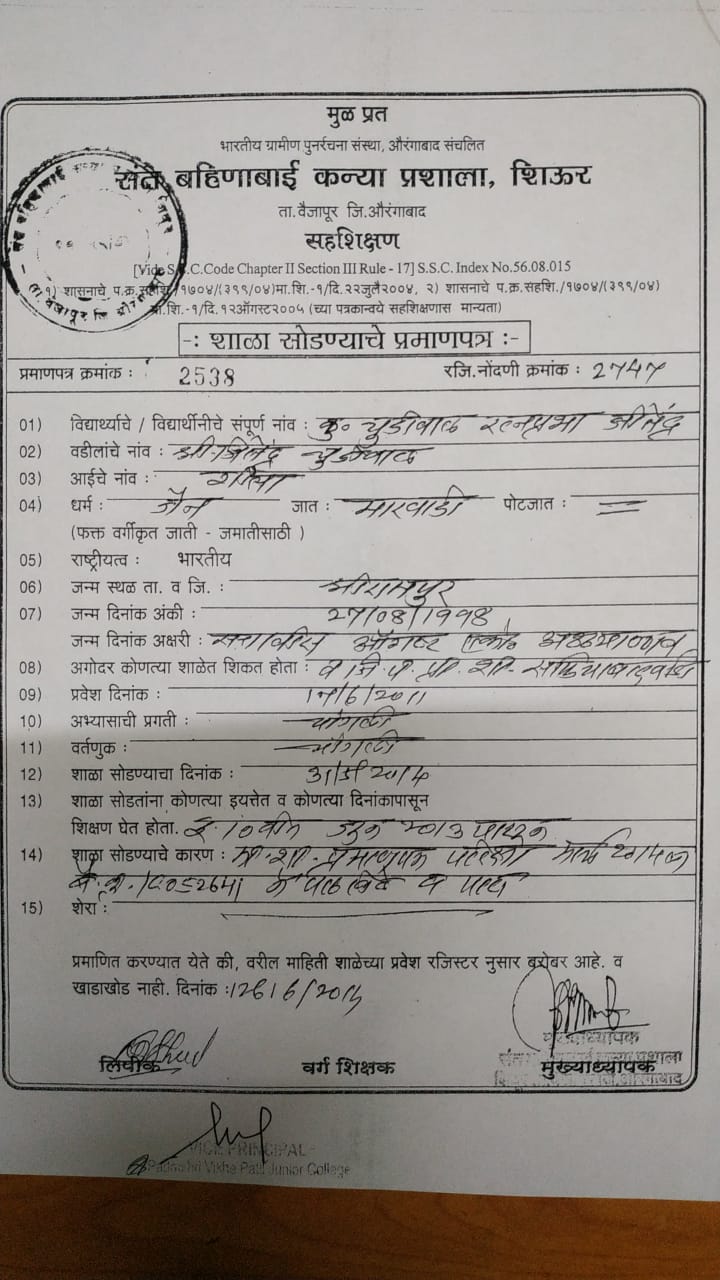 मुळ प्रत
भारतीय ग्रामीण पुनर्रचना संस्था, औरंगाबाद संचलित
संत बहिणाबाई कन्या प्रशाला, शिऊर
ता.वैजापूर जि.औरंगाबाद
सहशिक्षण
[Vide S.S.C.Code Chapter II Section III Rule - 17] S.S.C. Index No.56.08.015
१) शासनाचे प.क्र.सहशि./१७०४/(३९९/०४)मा.शि.-१/दि.२२जुलै२००४, २) शासनाचे प.क्र.सहशि./१७०४/(३९९/०४)
मा.शि.-१/दि.१२ऑगस्ट२००५ (च्या पत्रकान्वये सहशिक्षणास मान्यता)
-: शाळा सोडण्याचे प्रमाणपत्र :-
प्रमाणपत्र क्रमांक : 2538 रजि.नोंदणी क्रमांक : २७४७
01) विद्यार्थ्याचे / विद्यार्थीनीचे संपूर्ण नांव : कु. चुडीवाळ रत्नप्रभा जीतेंद्र
02) वडीलांचे नांव : श्री. जितेंद्र चुडीवाळ
03) आईचे नांव :
04) धर्म : जैन जात : मारवाडी पोटजात : =
(फक्त वर्गीकृत जाती - जमातीसाठी )
05) राष्ट्रीयत्व : भारतीय
06) जन्म स्थळ ता. व जि. : श्रीरामपुर
07) जन्म दिनांक अंकी : २७/०८/१९९८
जन्म दिनांक अक्षरी : सत्तावीस ऑगष्ट अठ्ठयाण्णव
08) अगोदर कोणत्या शाळेत शिकत होता : जि. प. प्रा. शा.
09) प्रवेश दिनांक : १७/6/२०११
10) अभ्यासाची प्रगती : चांगली
11) वर्तणुक : चांगली
12) शाळा सोडण्याचा दिनांक : २०१४
13) शाळा सोडतांना कोणत्या इयत्तेत व कोणत्या दिनांकापासून
शिक्षण घेत होता. इ. १० वीत जुन २०१३ पासून
14) शाळा सोडण्याचे कारण : मा. शा. प्रमाणपत्र परिक्षा मार्च २०१४
बै. क्र.
15) शेरा :
प्रमाणित करण्यात येते की, वरील माहिती शाळेच्या प्रवेश रजिस्टर नुसार बरोबर आहे. व
खाडाखोड नाही. दिनांक :
मुख्याध्यापक
लिपीक वर्ग शिक्षक मुख्याध्यापक
VICE PRINCIPAL
Padmashri Vikhe Patil Junior College